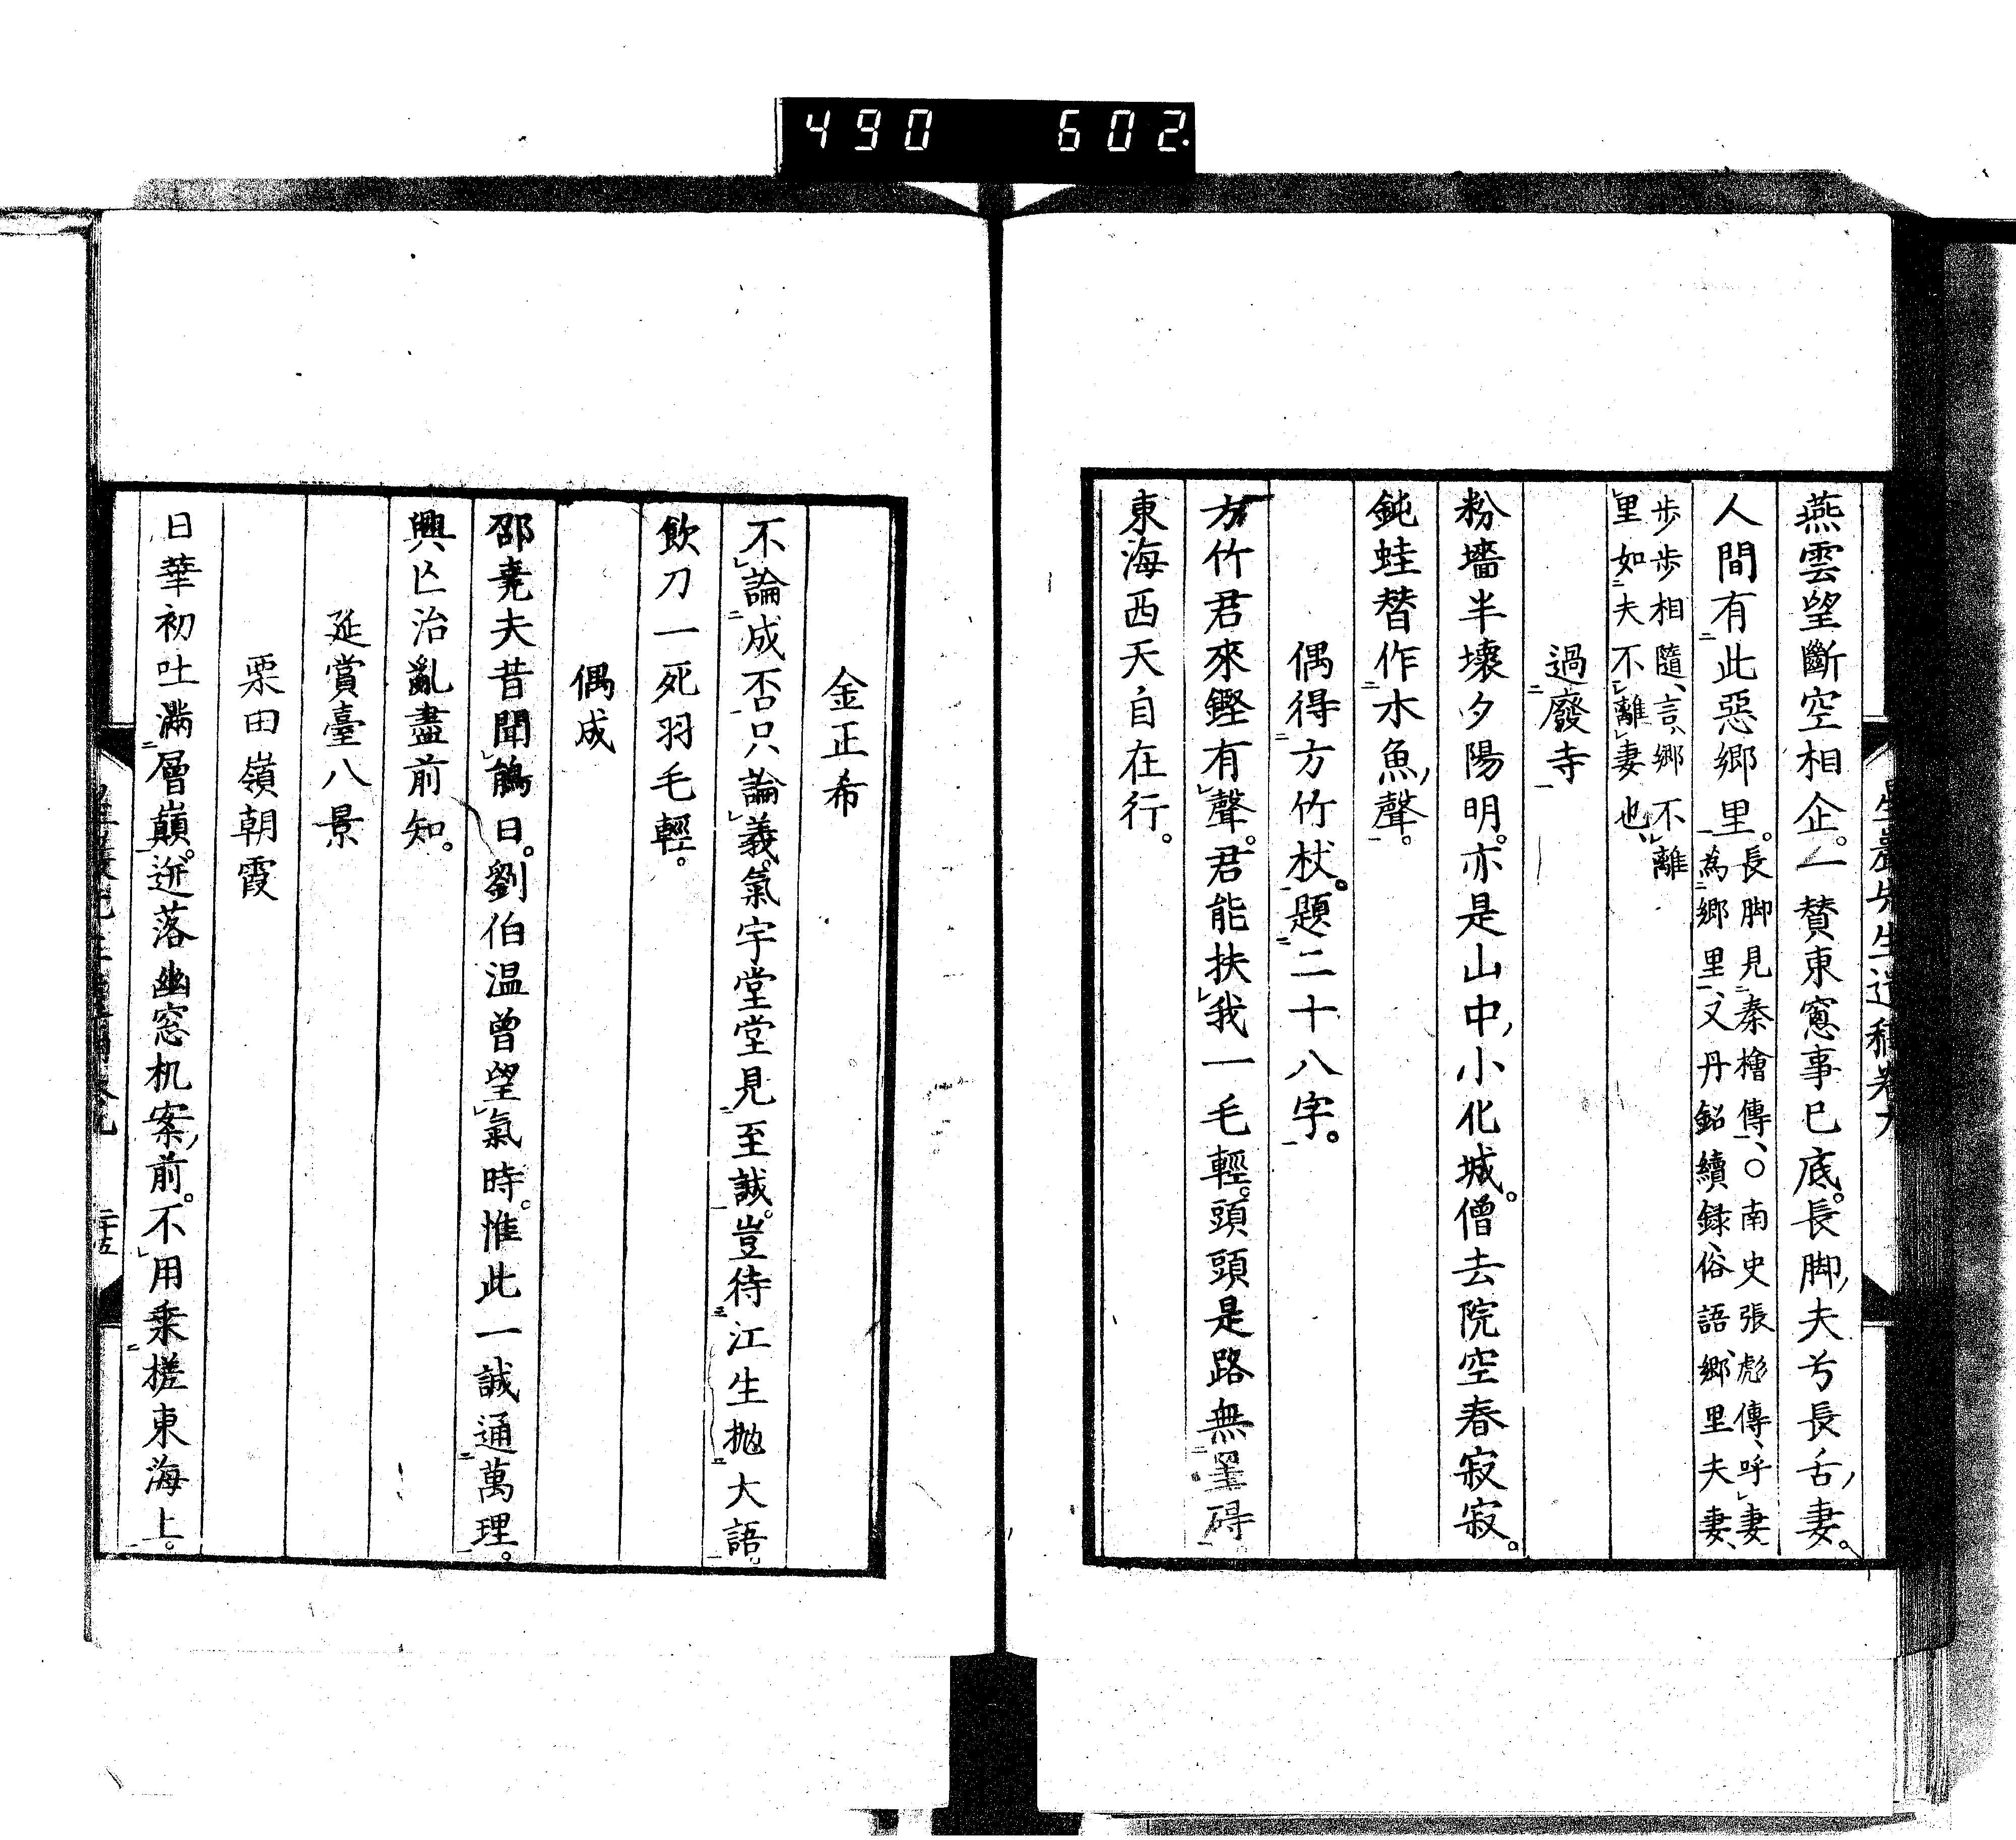 490 602
燕雲望斷空相企。一贊東窻事已底。長脚夫兮長舌妻。
人間有此惡鄉里。長脚見秦檜傳、〇南史張彪傳、呼妻
為鄉里、又丹鉛續録、俗語、鄉里夫妻、
步步相隨、言、鄉不離
里如夫不離妻也、
過廢寺
粉墻半壞夕陽明。亦是山中小化城。僧去院空春寂寂。
鈍蛙替作木魚聲。
偶得方竹杖。題二十八字。
方竹君來鏗有聲。君能扶我一毛輕。頭頭是路無罣碍
東海西天自在行。
金正希
不論成否只論義。氣宇堂堂見至誠。豈待江生拋大語
飲刀一死羽毛輕。
偶成
邵堯夫昔聞鵑日。劉伯温曾望氣時。惟此一誠通萬理。
興亡治亂盡前知。
延賞臺八景
栗田嶺朝霞
日華初吐滿層巔。迸落幽窓机案前。不用乘槎東海上。